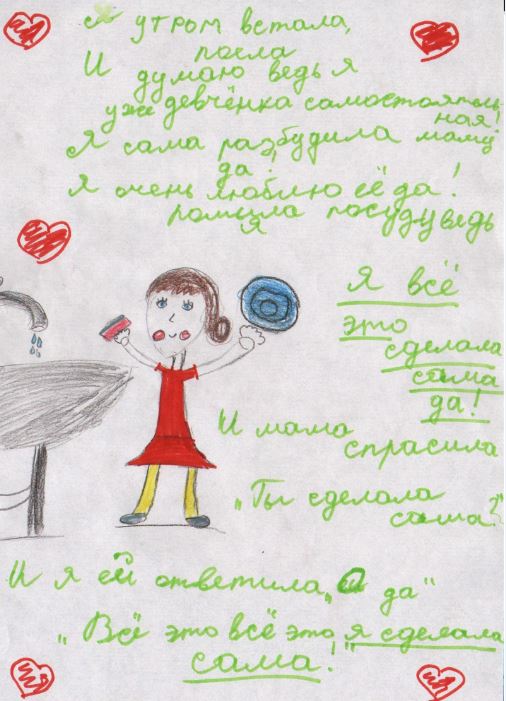 Я утром встала,
поела
И думаю ведь я
уже девчёнка самостоятель-
ная!
Я сама разбудила маму
да!
Я очень люблю её да!
помыла посуду ведь
я
Я всё
это
сделала
сама
да!
И мама
спрасила
„Ты сделала
сама?"
И я ей ответила, „а да"
„Всё это всё это я сделала
сама!"